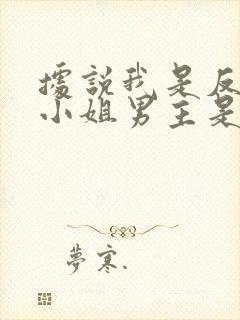 據說我是反
小姐男主是
夢寒.